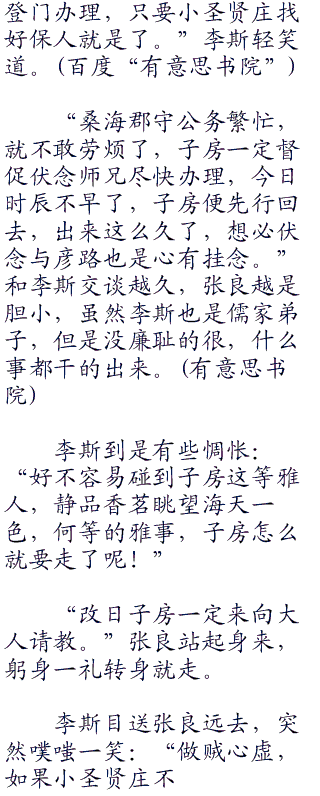 登门办理，只要小圣贤庄找
好保人就是了。”李斯轻笑
道。(百度“有意思书院”)
“桑海郡守公务繁忙，
就不敢劳烦了，子房一定督
促伏念师兄尽快办理，今日
时辰不早了，子房便先行回
去，出来这么久了，想必伏
念与彦路也是心有挂念。”
和李斯交谈越久，张良越是
胆小，虽然李斯也是儒家弟
子，但是没廉耻的很，什么
事都干的出来。(有意思书
院)
李斯到是有些惆怅：
“好不容易碰到子房这等雅
人，静品香茗眺望海天一
色，何等的雅事，子房怎么
就要走了呢！”
“改日子房一定来向大
人请教。”张良站起身来，
躬身一礼转身就走。
李斯目送张良远去，突
然噗嗤一笑：“做贼心虚，
如果小圣贤庄不